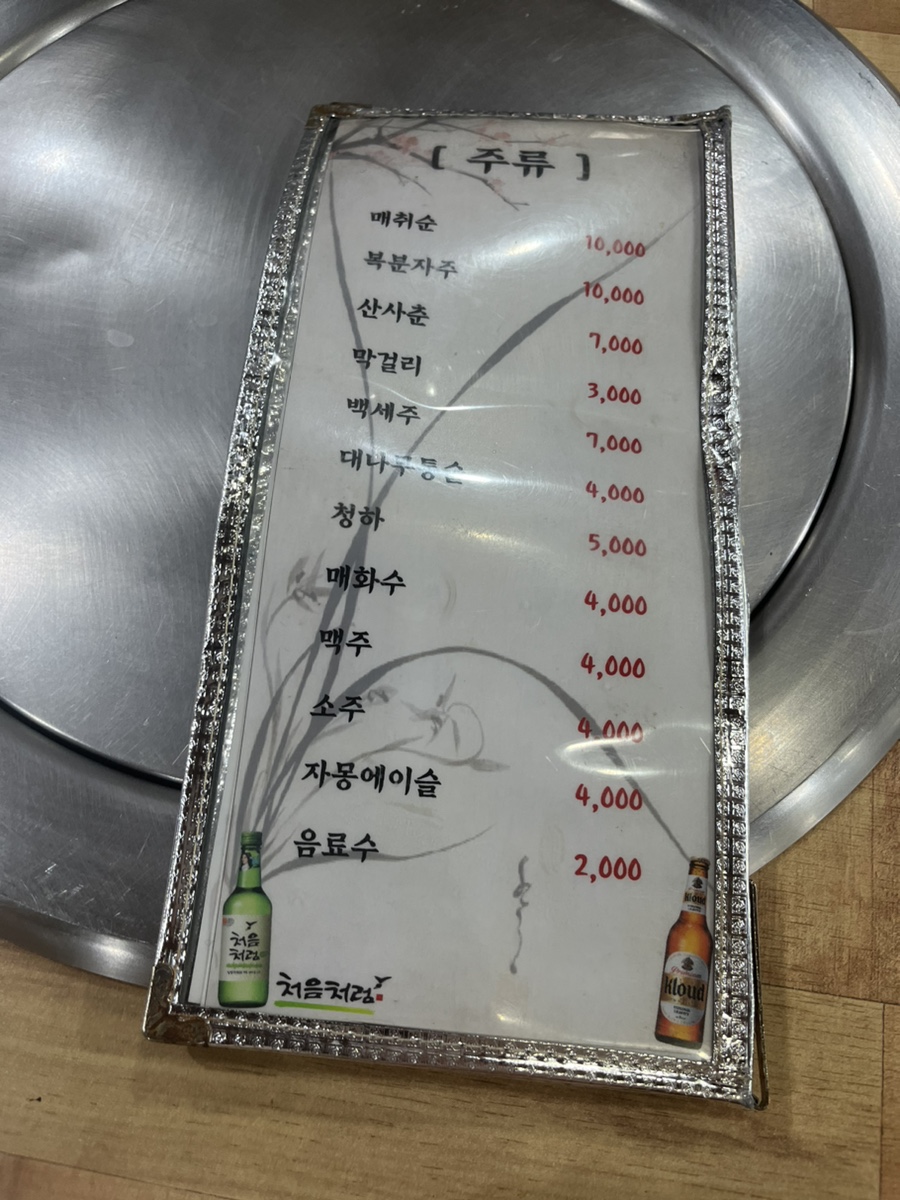 [ 주류 ]
매취순 10,000
복분자주 10,000
산사춘 7,000
막걸리 3,000
백세주 7,000
대나무통술 4,000
청하 5,000
매화수 4,000
맥주 4,000
소주 4,000
자몽에이슬 4,000
음료수 2,000
처음
처럼
처음처럼
Kloud
Kloud